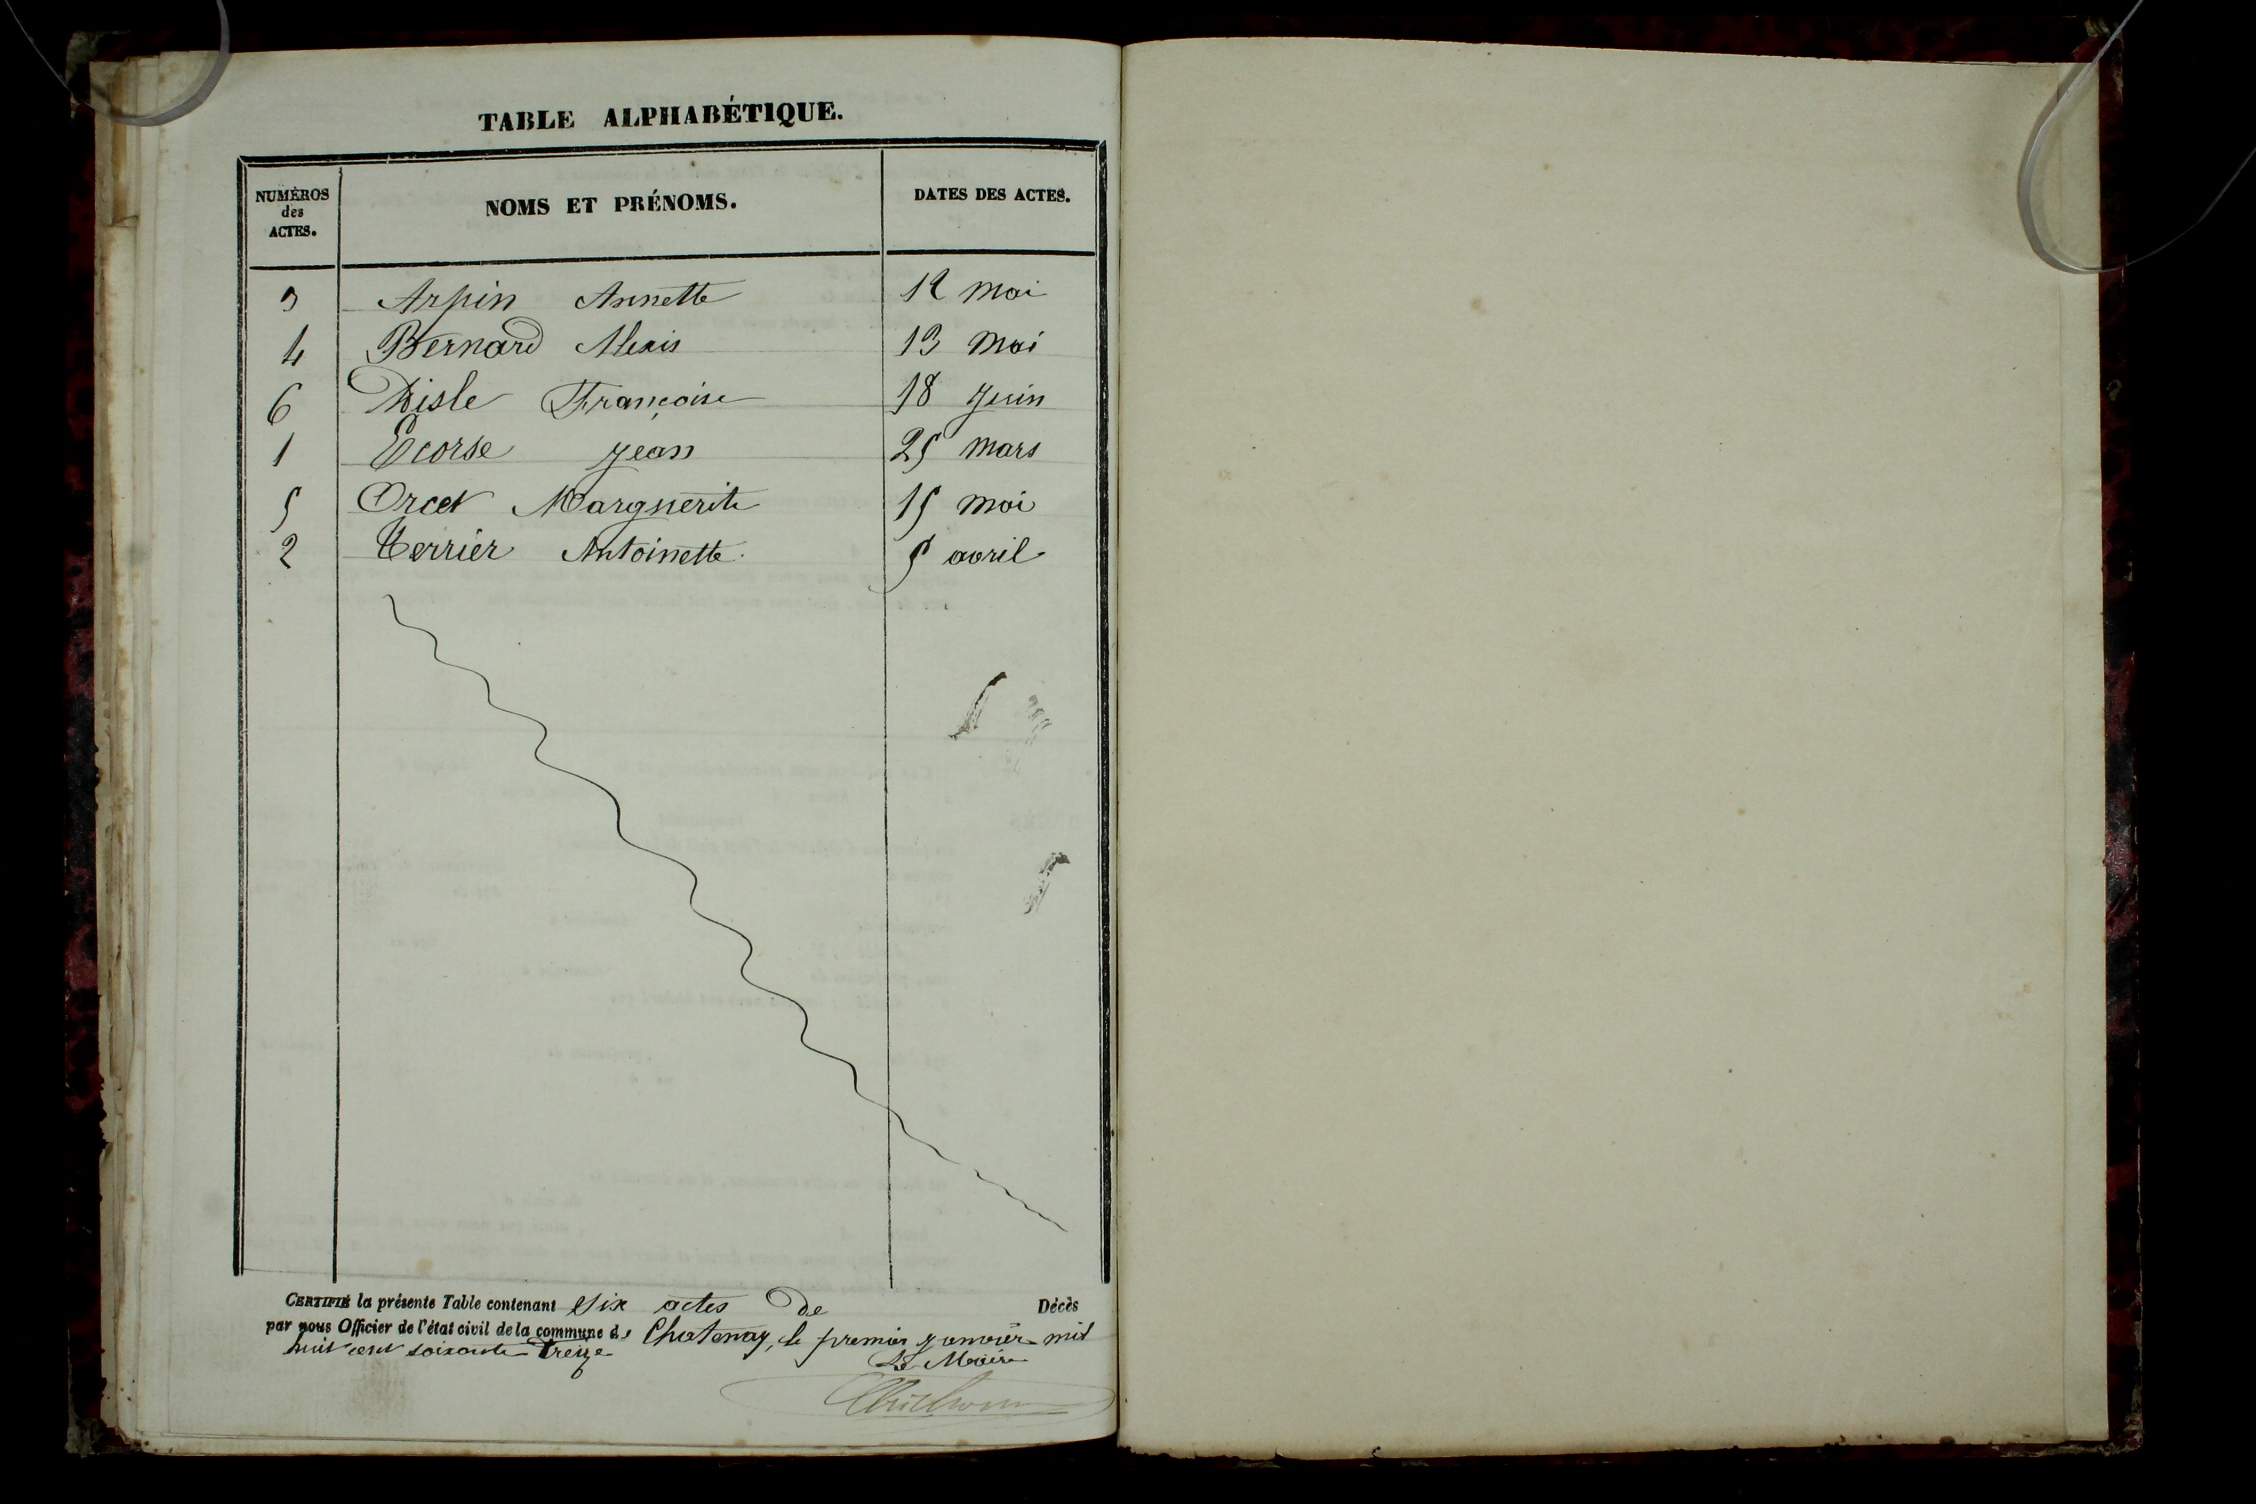 TABLE ALPHABÉTIQUE.
NUMÉROS des ACTES. NOMS ET PRÉNOMS. DATES DES ACTES.
3 Arpin Annette 12 Mai
4 Bernard Alexis 13 Mai
6 Disle Françoise 18 Juin
1 Ecorse Jean 25 Mars
5 Orcet Marguerite 15 Mai
2 Terrier Antoinette 5 avril
CERTIFIÉ la présente Table contenant Six actes De Décès
par nous Officier de l'état civil de la commune de Chatenay, le premier Janvier mil
huit cent soixante Treize
Le Maire